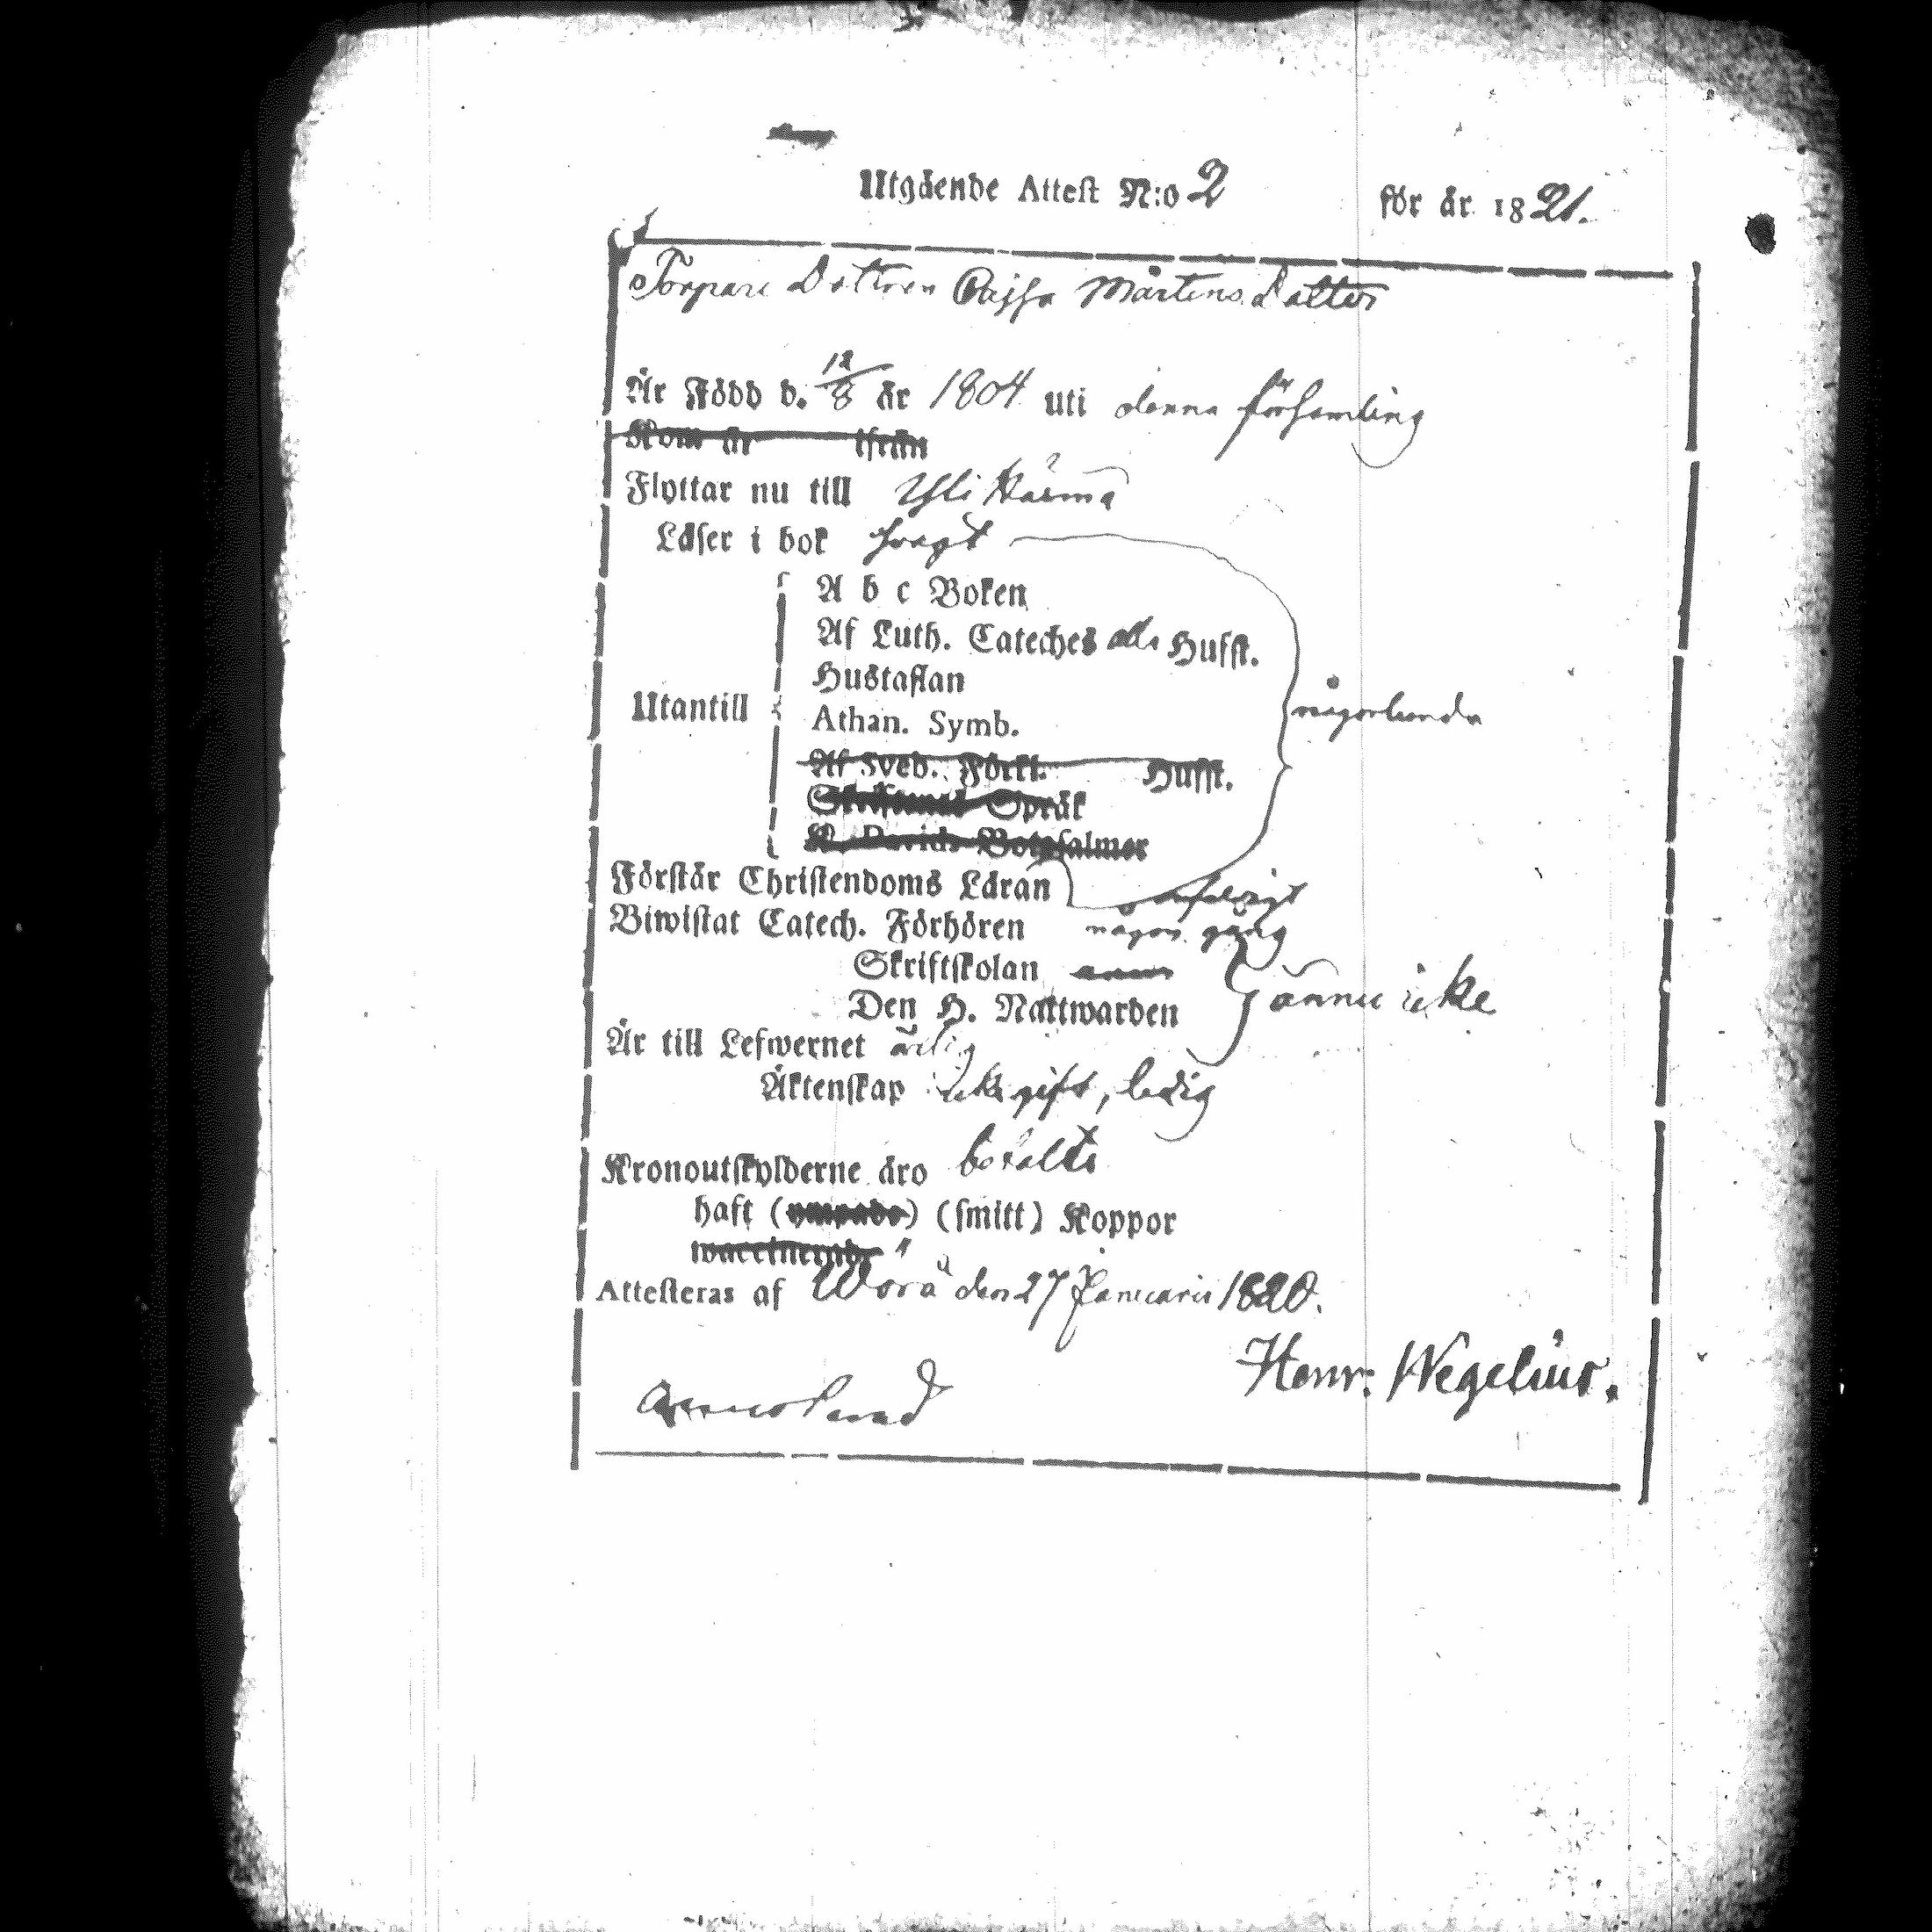 Utgående Attest N:o 2 för år 1821.
Torpare Dottren Cajsa Mårtens Dotter
Är Född d. 12/8 år 1804 uti denna församling
Kom år ifrån
Flyttar nu till Yli Härmä
Läser i bok svagt
A b c Boken
Af Luth. Cateches alla Hufst.
Hustaflan
Utantill
Athan. Symb.
någorlunda
Af Sveb. Förkl. Hufst.
Skriftenes Språk
K. Davids Botpsalmer
Förstår Christendoms Läran enfaldigt
Biwistat Catech. Förhören någon gång
Skriftskolan
Den H. Nattwarden ännu icke
Är till Lefwernet ärlig
Äktenskap icke gift, ledig
Kronoutskylderne äro betalte
haft (ympade) (smitt) Koppor
waccinerade
Attesteras af Wörå den 27 Januarii 1820.
Henr: Wegelius.